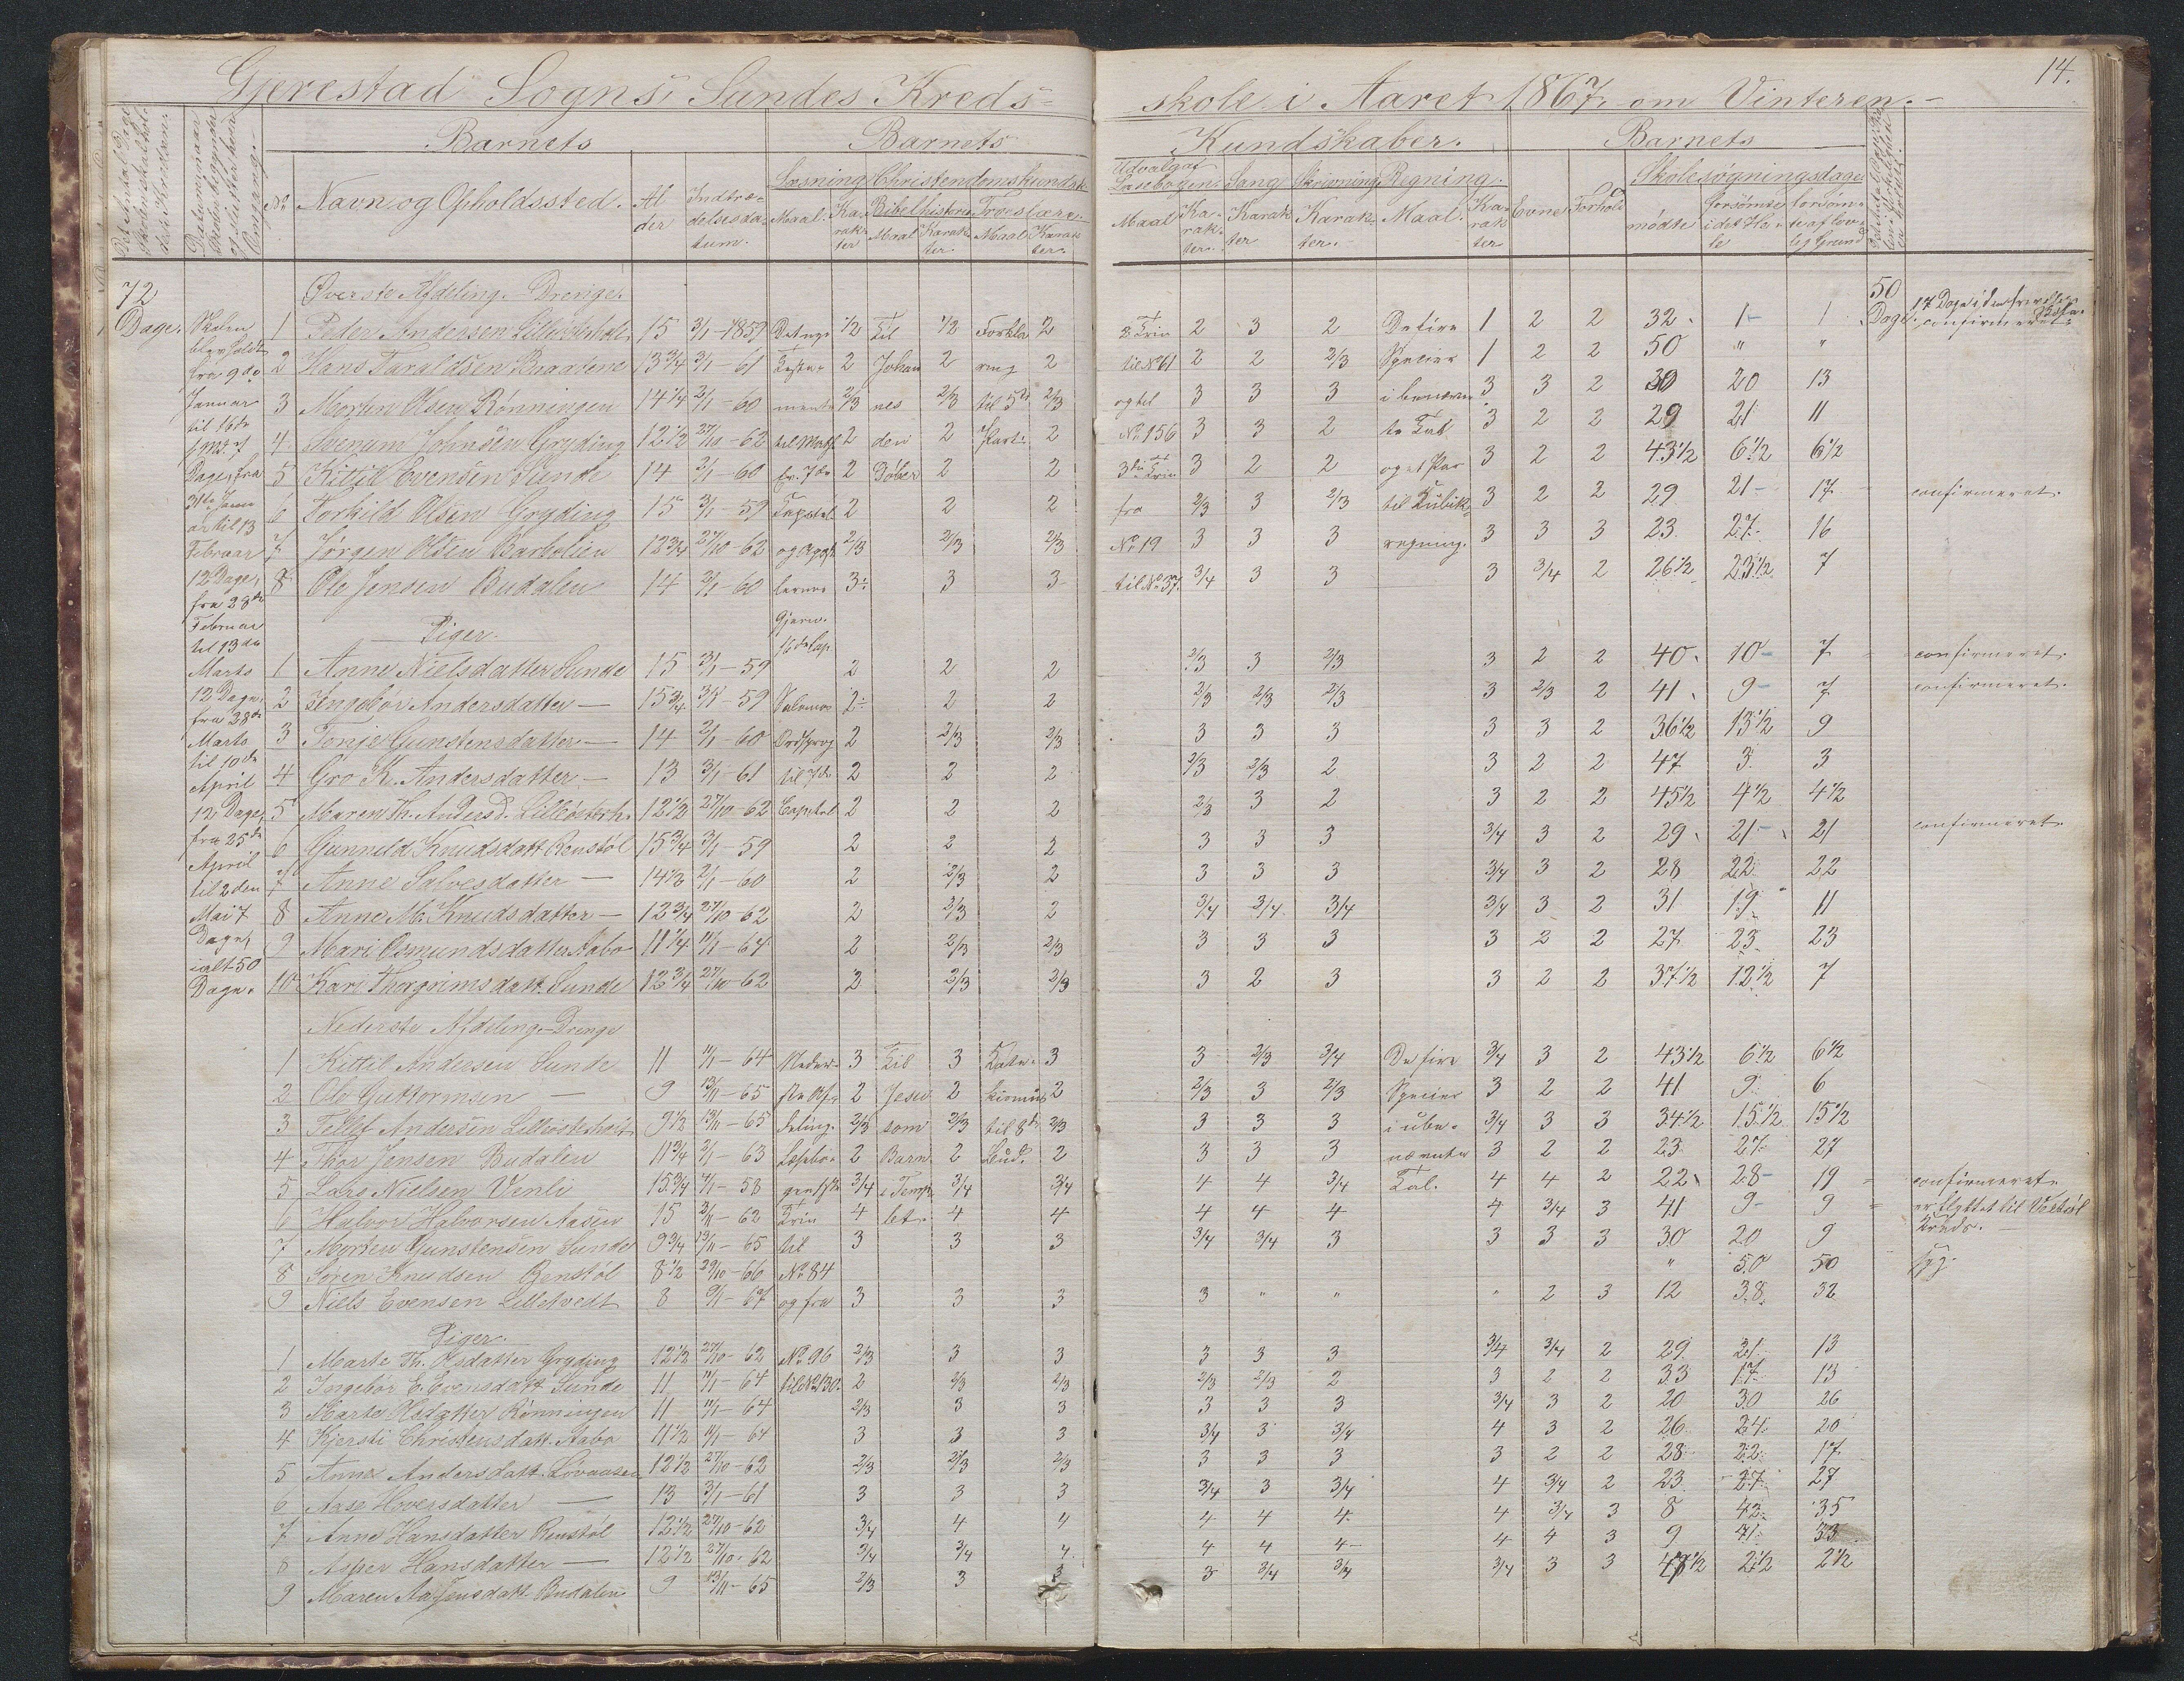 14.
Gjerestad Sogns, Sundes Kreds- skole i Aaret 1867 om Vinteren.-
Barnets Barnets Kundskaber. Barnets
Læsning Christendomskundsk- Udvalg af Læsebogen. Sang Skrivning Regning. Evner Forhold Skolesøgningsdage
No Navn og Opholdssted. Al der Indtrædelsesdatum. Maal. Karakter Bibelhistorie Troeslære.
Maal Karakter Maal Karakter Maal Karakter Karakter Karakter. Maal. Karakter mødte forsømte i det Hele forsømte af lovlig Grund
72 Dage.
Skolen blev holdt fra 9de Januar til 16de
Dage, fra 31te Januar til 13 Februar 12 Dage, fra 28de Februar til 13de Marts 12 Dage, fra 28de Marts til 10de April 12 Dage, fra 25de April til 2den Mai 7 Dage, ialt 50 Dage.
Øverste Afdeling.- Drenge.
50 Dage.
1 Peder Andersen Lilleøsterholt 15 3/1-1859 Det nye 1/2 Til 1/2 Forkla 2 2 3 2 De fire 1 2 2 32 1 1 confirmeret.
2 Hans Taraldsen Braatene 13 3/4 3/1-61 Testa- 2 Johan 2 ring 2 til No 61 2 2 2/3 Species 1 2 2 50 " "
3 Morten Olsen Rønningen 14 1/4 2/1-60 mente 2/3 nes 2/3 til 5te 2/3 og til 3 3 3 i benævn 3 3 2 30 20 13
4 Johnsen Gryding 12 1/2 27/10-62 2 den 2 Part. 2 No 156 3 3 2 te Tal 3 2 2 29 21 11
5 Kittil Evensen Sunde 14 2/1-60 2 Døber 2 2 3die Trin 3 2 2 og et Par 3 2 2 43 1/2 6 1/2 6 1/2
6 Torkild Olsen Gryding 15 3/1-59 Kapitel 2 2 2 fra 2/3 3 2/3 til Kubik- 3 2 2 29 21 17 confirmeret.
7 Jørgen Olsen Barbolien 12 3/4 27/10-62 2/3 2/3 2/3 No 19 3 3 3 regning. 3 3 3 23 27 16
8 Ole Jensen Budalen 14 2/1-60 3 3 3 til No 37. 3/4 3 3 3 3/4 2 26 1/2 23 1/2 7
Piger.
1 Anne Nielsdatter Sunde 15 3/1-59 2 2 2 2/3 3 2/3 3 2 2 40 10 7 confirmeret.
2 Ingebor Andersdatter — 15 3/4 3/1-59 Salomos 2 2 2 2/3 2/3 2/3 3 2/3 2 41 9 7 confirmeret.
3 Tonje Gunstensdatter — 14 2/1-60 Ordsprog 2 2/3 2/3 3 3 3 3 3 2 36 1/2 13 1/2 9
4 Gro K. Andersdatter — 13 3/1-61 til 7de 2 2 2 2/3 2/3 2 3 2 2 47 3 3
5 Maren Th. Andersd. Lilleøsterh. 12 1/2 27/10-62 Capitel 2 2 2 2/3 3 2 3 2 2 45 1/2 4 1/2 4 1/2
6 Gunnild Knudsdatt Renstøl 15 3/4 3/1-59 2 2 2 3 3 3 3/4 3 2 29 21 21 confirmeret.
7 Anne Salvesdatter — 14 1/2 2/1-60 2 2/3 2 3 3 3 3/4 3 2 28 22 22
8 Anne M. Knudsdatter — 12 3/4 27/10-62 2 2/3 2 3/4 3/4 3/4 3/4 3 2 31 19 11
9 Mari Osmundsdatter Aabo 11 1/4 11/1-64 2 2/3 2/3 3 3 3 3 2 2 27 23 23
10 Kari Thorgrimsdatt. Sunde 12 3/4 27/10-62 2 2/3 2/3 3 2 3 3 2 2 37 1/2 12 1/2 7
Nederste Afdeling.- Drenge
1 Kittil Andersen Sunde 11 11/1-64 Neder- 3 Til 3 Kate- 3 3 2/3 3/4 De fire 3/4 3 2 43 1/2 6 1/2 6 1/2
2 Ole Guttormsen — 9 13/11-65 ste Af- 2 Jesu 2 kismus 2 2/3 3 2/3 Species 3 2 2 41 9 6
3 Tellef Andersen Lilleøsterholt 9 1/2 13/11-65 deling. 2/3 som 2/3 til 8de 2/3 3 3 3 i ube- 3/4 3 3 34 1/2 15 1/2 15 1/2
4 Thor Jensen Budalen 11 3/4 2/1-63 Læsebo- 2 Barn 2 Bud. 2 3 3 3 nævnte 3 2 2 23 27 27
5 Lars Nielsen Venli 15 3/4 4/1-58 3/4 i Temp 3/4 3/4 4 4 3/4 Tal. 4 4 2 22 28 19 confirmeret.
6 Halvor Halvorsen Aasen 15 3/11-62 Trin 4 let. 4 4 4 4 4 4 3/4 3 41 9 9 er flyttet til Vestøl Kreds.
7 Morten Gunstensen Sunde 9 3/4 13/11-65 til 3 3 3 3/4 3/4 3 3 3 3 30 20 9
8 Søren Knudsen Renstøl 8 1/2 29/10-66 No 84 " 50 50 syg.
9 Niels Evensen Lilletvedt 8 9/1-67 og fra 3 3 3 3 " " " 2 3 12 38 32
Piger.
1 Marte Th. Olsdatter Gryding 12 1/2 27/10-62 No 96 2/3 3 3 3 3 3 3/4 3/4 2 29 21 13
2 Ingebor E. Evensdatt. Sunde 11 11/1-64 til No 130. 2 2/3 2/3 2/3 2/3 2 3 2 2 33 17 13
3 Marte Olsdatter Rønningen 11 11/1-64 2/3 3 3 3 3 3 3/4 3 2 20 30 26
4 Kjersti Christensdatt. Aabo 11 1/2 11/1-64 3 3 3 3/4 3 3/4 4 3 2 26 24 20
5 Anne Andersdatt. Lövaasen 12 1/2 27/10-62 2/3 2/3 2/3 3 3 3 3 2 2 28 22 17
6 Aase Hoversdatter — 13 3/1-61 3 3 3 3/4 3 3/4 4 3/4 2 23 27 27
7 Anne Hansdatter Renstøl 12 1/2 27/10-62 3/4 4 4 4 4 4 4 3/4 3 8 42 35
8 Asper Hansdatter — 12 1/2 27/10-62 3/4 3/4 4 4 4 4 4 4 3 9 41 33
9 Maren Aa Jensdatt. Budalen 9 13/11-65 2/3 3 3 3 3/4 3/4 3/4 3 3 47 1/2 2 1/2 2 1/2